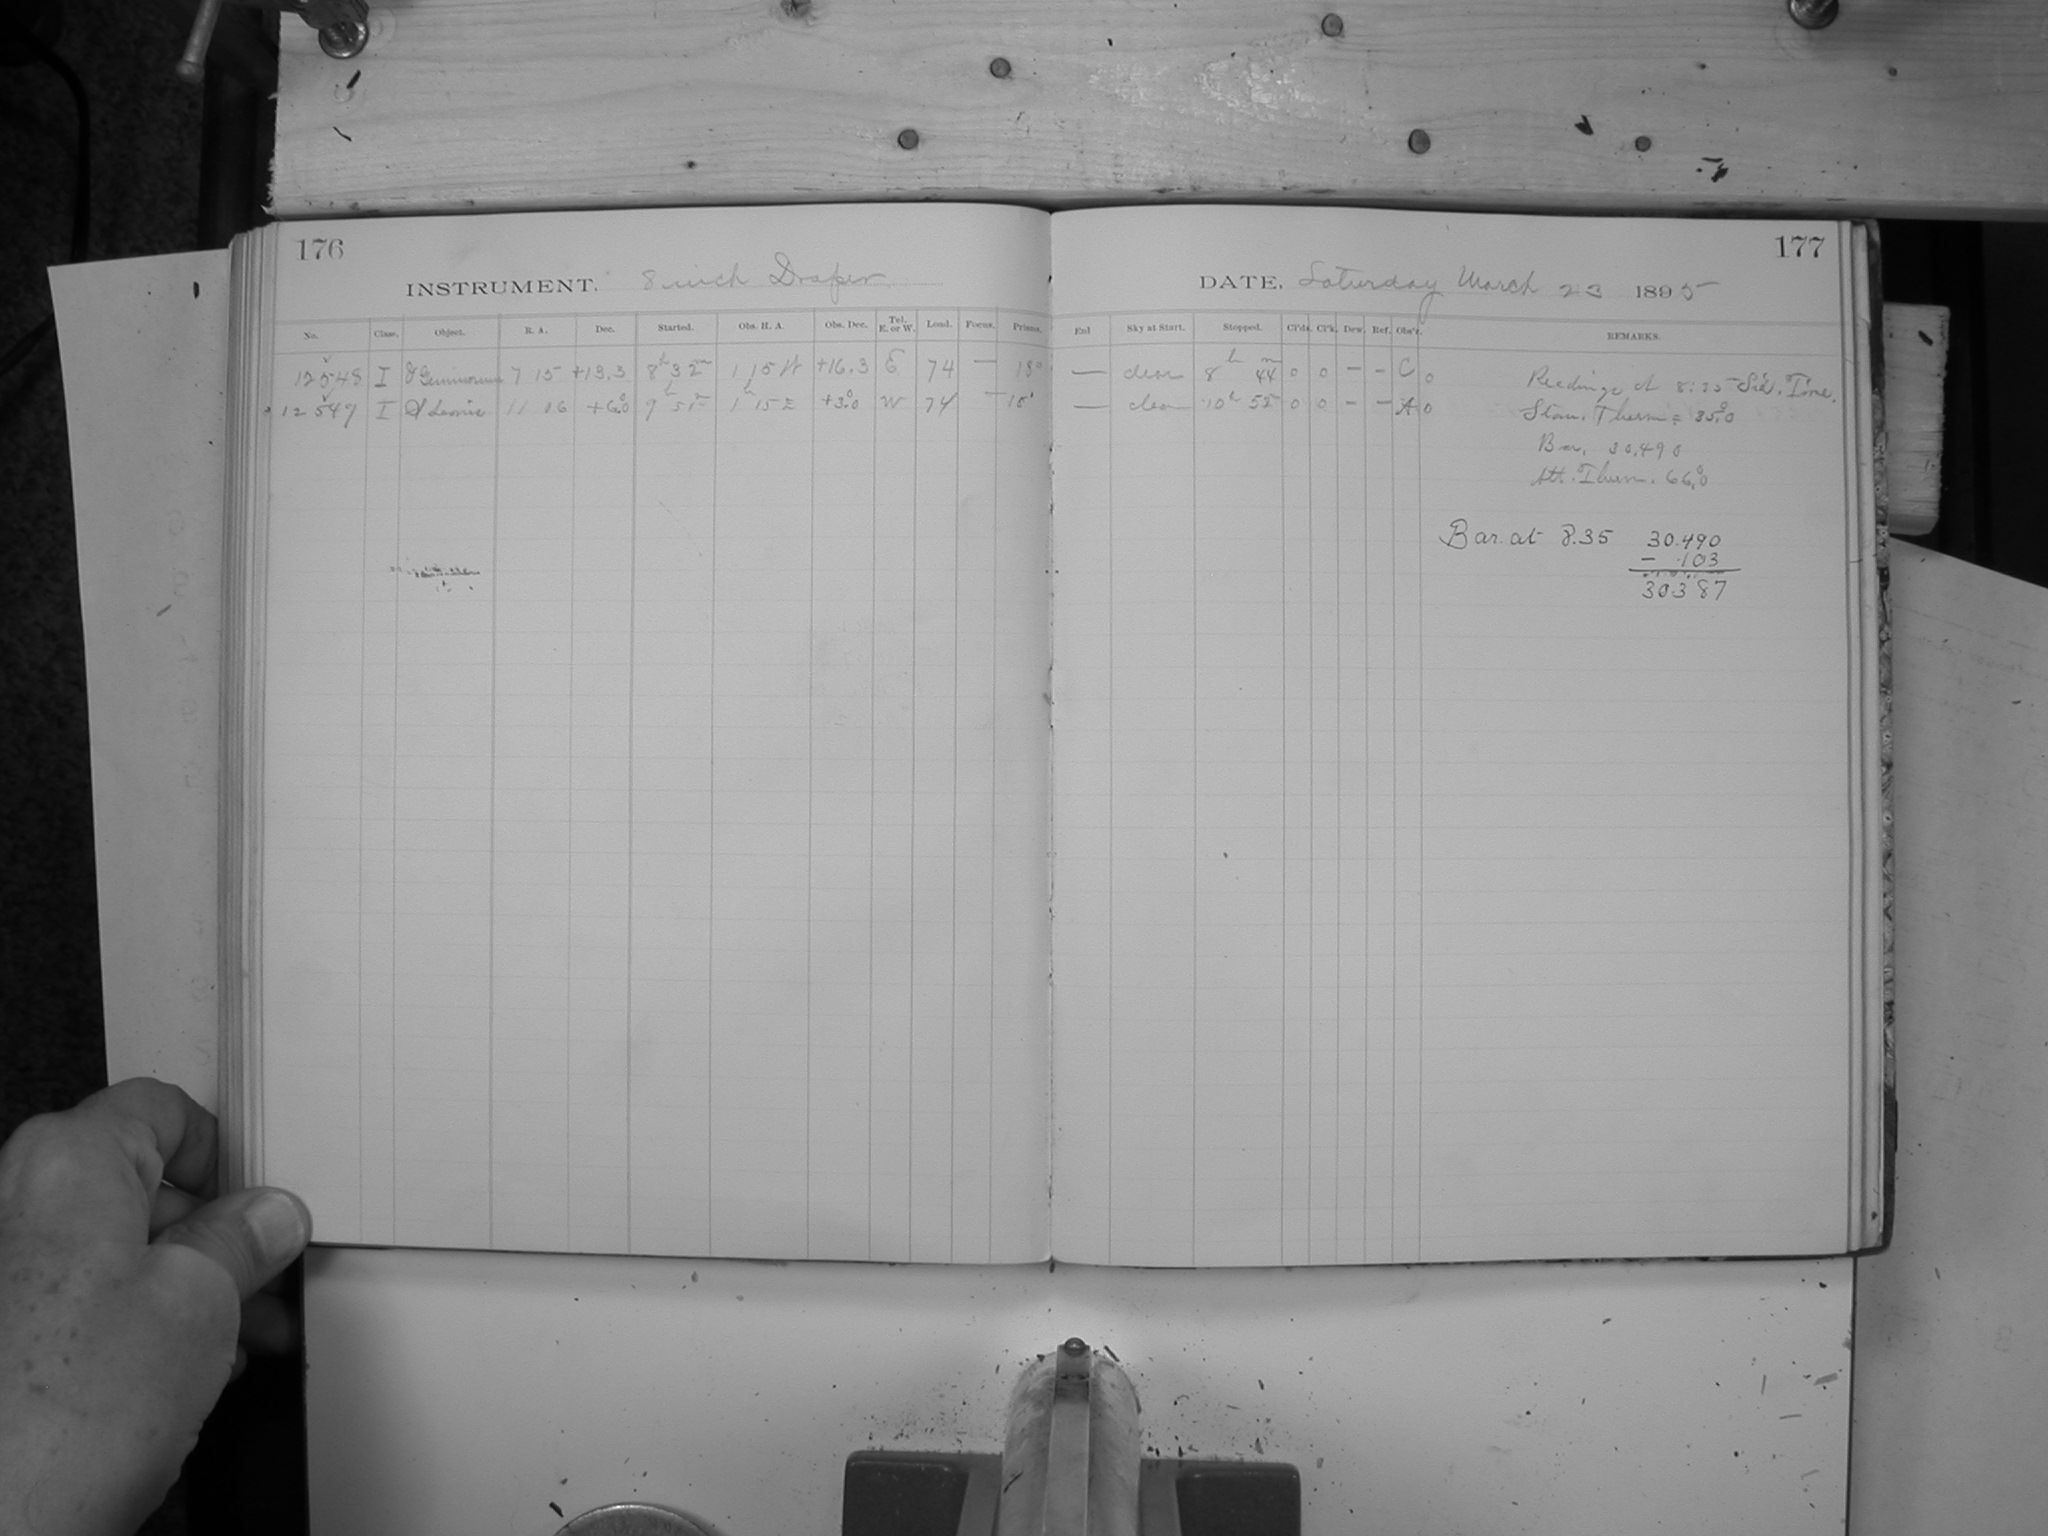 176
INSTRUMENT. 8 inch Draper
No. Class. Object. R. A. Dec. Started. Obs. H. A. Obs. Dec. Tel. E. or W. Load. Focus. Prisms.
12548 I Geminorum 7 15 +13.3 8h 32m 1 15 W +16.3 E 74 — 15°
12549 I Leonis 11 06 +6.0 9h 1h 15 E +3.0 W 74 — 15°
177
DATE. Saturday March 23 1895
Enl Sky at Start. Stopped. Cl'ds. Cl'k. Dew. Ref. Obs'r. REMARKS.
— clear 8h 44m 0 0 — — C 0 Readings at 8:35 Sid. Time.
— clear 10h 52 0 0 — — A 0 Stan. Therm = 35.0
Bar. 30.490
Att. Therm. 66.0
Bar. at 8.35 30.490
- .103
30.387